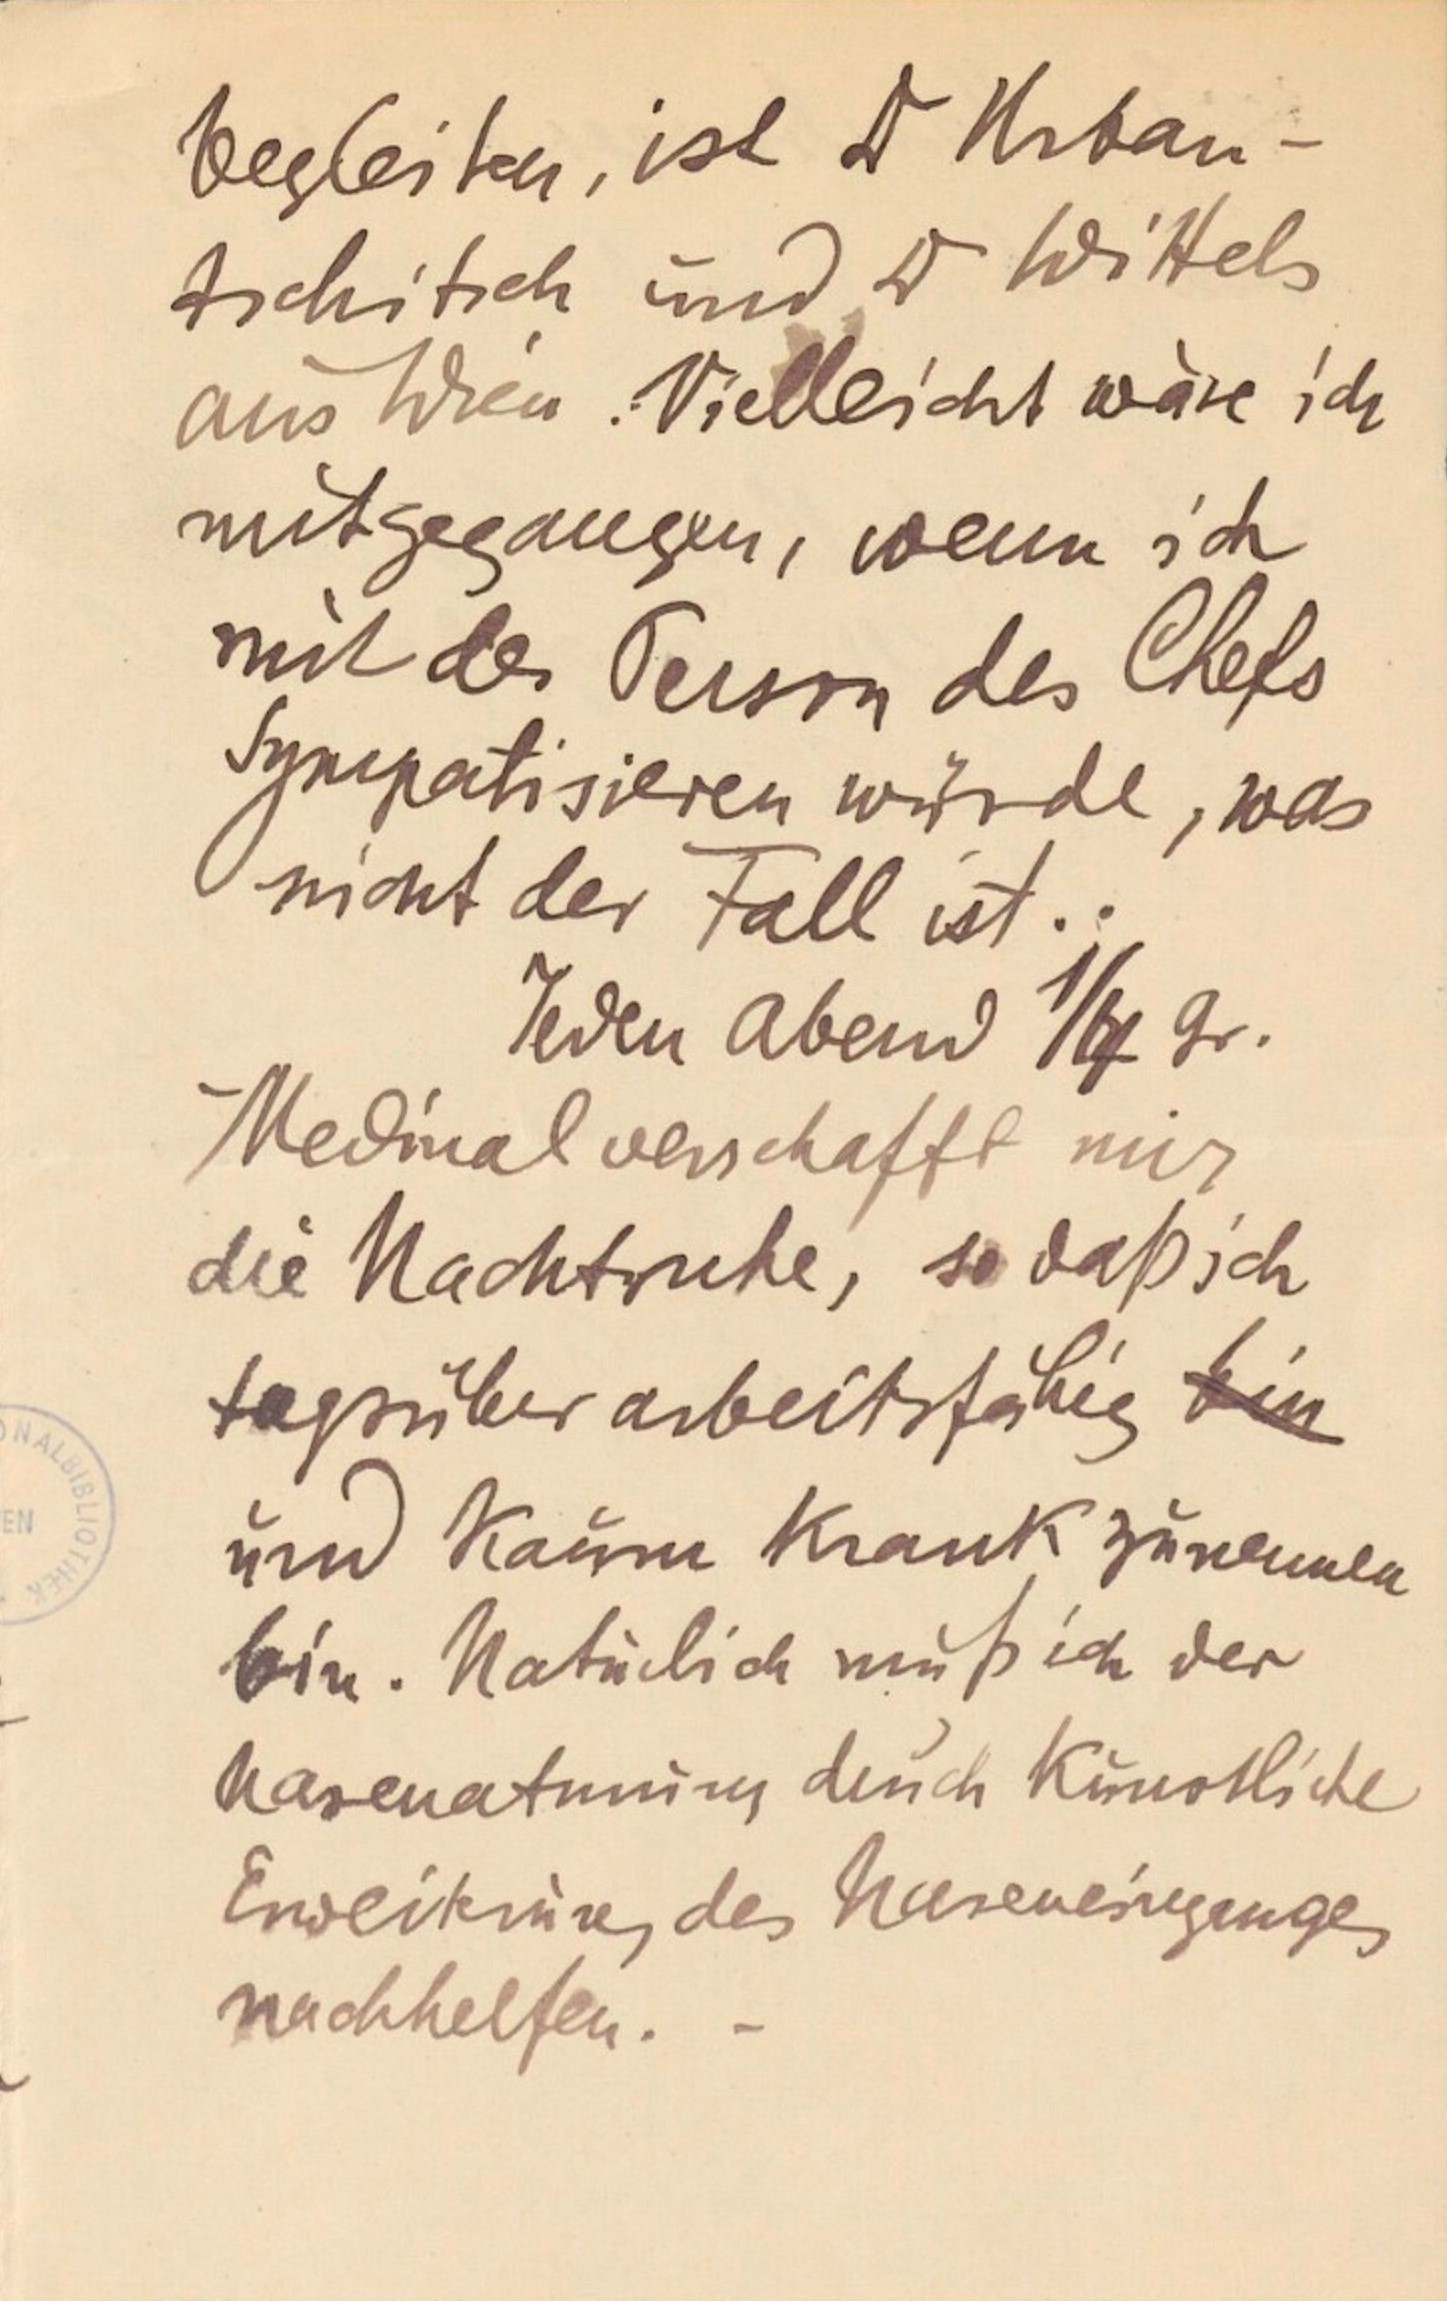 begleiten, ist Dr Urban-
tschitsch und Dr Wittels
aus Wien. Vielleicht wäre ich
mitgegangen, wenn ich
mit der Person des Chefs
sympatisieren würde, was
nicht der Fall ist..
Jeden Abend 1/4 gr.
Medinal verschafft mir
die Nachtruhe, so daß ich
tagsüber arbeitsfähig bin
und kaum krank zu nennen
bin. Natürlich muß ich der
Nasenatmung durch künstliche
Erweiterung des Naseneinganges
nachhelfen. -
ONALBIBLIOTHEK
EN